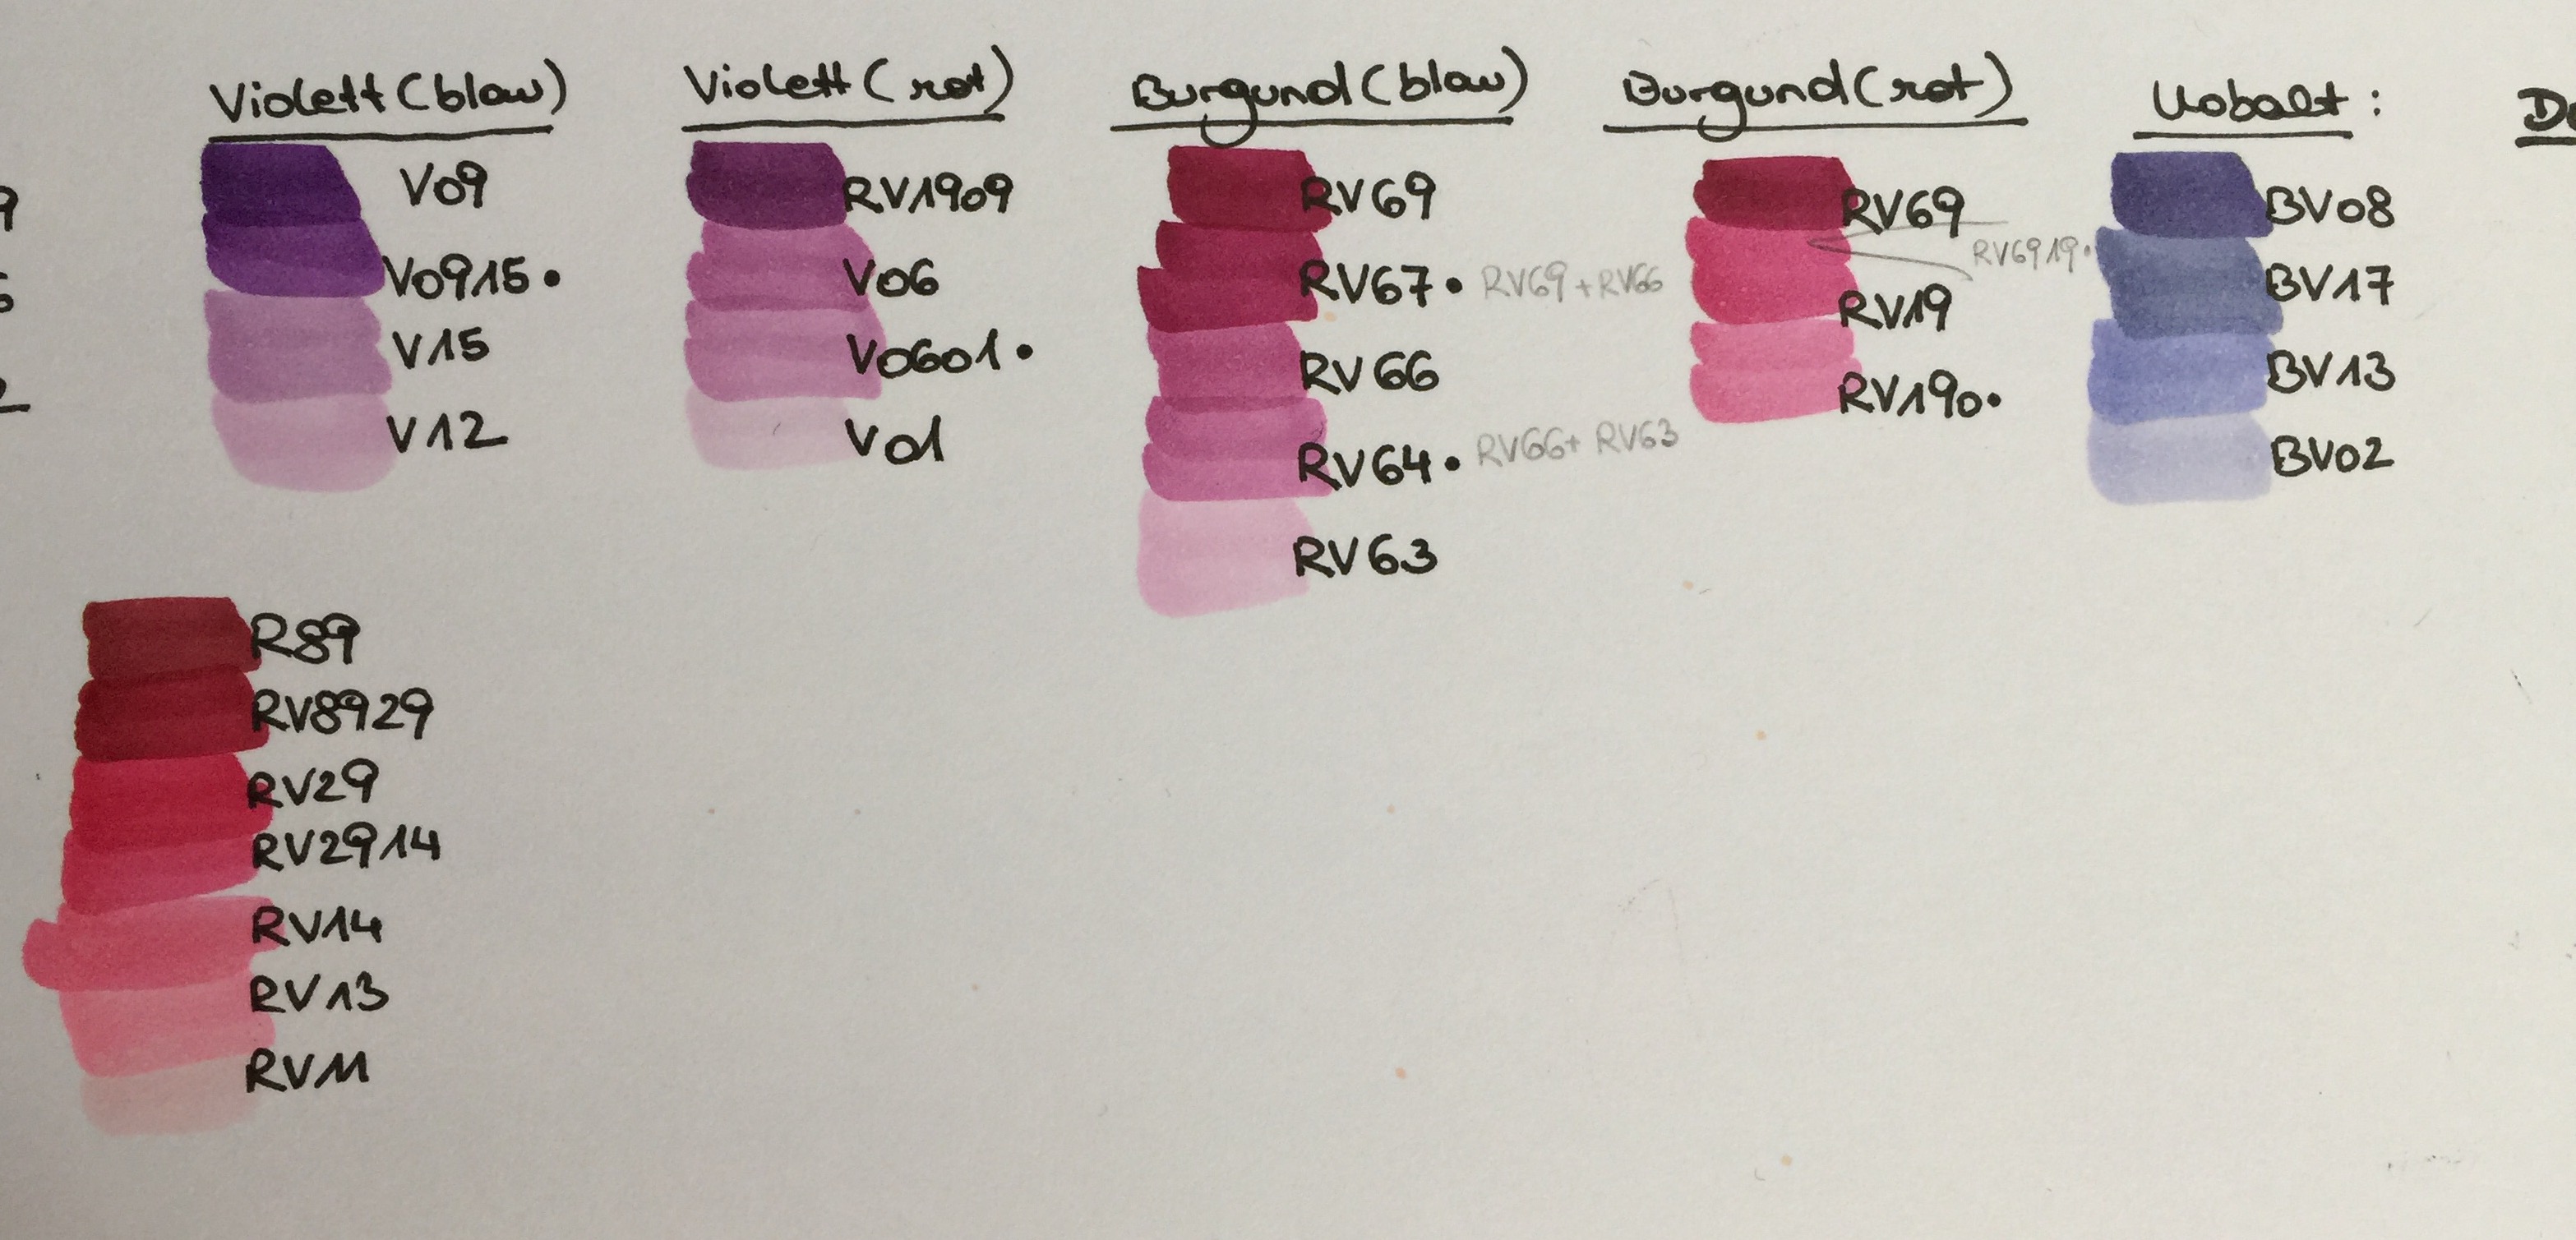 Violett (blau)
V09
V0915.
V15
V12
Violett (rot)
RV1909
V06
V0601.
V01
Burgund (blau)
RV69
RV67. RV69+RV66
RV66
RV64. RV66+ RV63
RV63
Burgund (rot)
RV69
RV6919.
RV19
RV190.
Kobalt:
BV08
BV17
BV13
BV02
R89
RV8929
RV29
RV2914
RV14
RV13
RV11